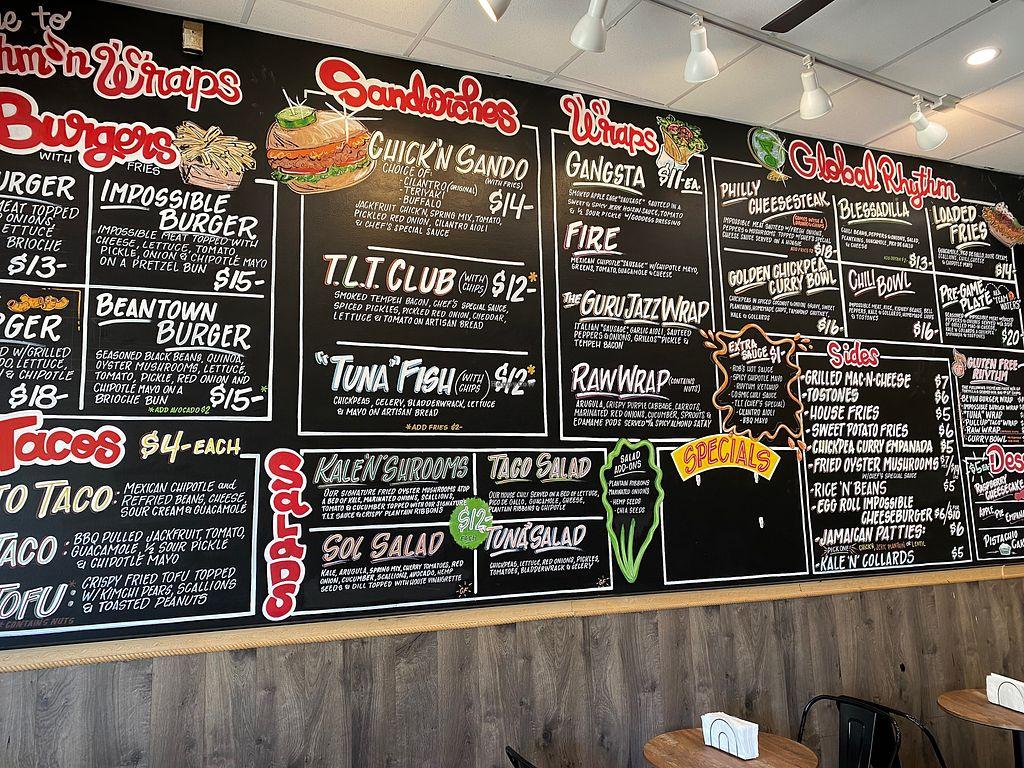 e to
hm'n Wraps
Burgers
WITH FRIES
URGER
MEAT TOPPED
ONIONS,
LETTUCE
BRIOCHE
$13-
IMPOSSIBLE
BURGER
IMPOSSIBLE MEAT TOPPED WITH
CHEESE, LETTUCE, TOMATO,
PICKLE, ONION & CHIPOTLE MAYO
ON A PRETZEL BUN
$15-
RGER
D W/GRILLED
DO, LETTUCE,
Y CHIPOTLE
$18-
BEANTOWN
BURGER
SEASONED BLACK BEANS, QUINOA,
OYSTER MUSHROOMS, LETTUCE,
TOMATO, PICKLE, RED ONION AND
CHIPOTLE MAYO ON A
BRIOCHE BUN
$15-
*ADD AVOCADO $2
Tacos
$4-EACH
TO TACO:
MEXICAN CHIPOTLE and
REFRIED BEANS, CHEESE,
SOUR CREAM & GUACAMOLE
TACO:
BBQ PULLED JACKFRUIT, TOMATO,
GUACAMOLE, ½ SOUR PICKLE
& CHIPOTLE MAYO
TOFU:
CRISPY FRIED TOFU TOPPED
W/KIMCHI PEARS, SCALLIONS
& TOASTED PEANUTS
*CONTAINS NUTS
Sandwiches
CHICK'N SANDO
(WITH FRIES)
CHOICE OF:
-CILANTRO (ORIGINAL)
-TERIYAKI
-BUFFALO
$14-
JACKFRUIT CHICK'N, SPRING MIX, TOMATO,
PICKLED RED ONION, CILANTRO AIOLI
& CHEF'S SPECIAL SAUCE
T.L.T. CLUB (WITH CHIPS) $12-*
SMOKED TEMPEH BACON, CHEF'S SPECIAL SAUCE,
SPICED PICKLES, PICKLED RED ONION, CHEDDAR,
LETTUCE & TOMATO ON ARTISAN BREAD
"TUNA" FISH (WITH CHIPS) $12-*
CHICKPEAS, CELERY, BLADDERWRACK, LETTUCE
& MAYO ON ARTISAN BREAD
*ADD FRIES $2-
Salads
KALE 'N' SHROOMS
OUR SIGNATURE FRIED OYSTER MUSHROOMS ATOP
A BED OF KALE, MARINATED ONIONS, SCALLIONS,
TOMATO & CUCUMBER TOPPED WITH OUR SIGNATURE
T.L.T. SAUCE & CRISPY PLANTAIN RIBBONS
TACO SALAD
OUR HOUSE CHILI SERVED ON A BED OF LETTUCE,
PICO DE GALLO, GUACAMOLE, CHEESE,
PLANTAIN RIBBONS & CHIPOTLE
$12-
EACH
SOL SALAD
KALE, ARUGULA, SPRING MIX, CHERRY TOMATOES, RED
ONION, CUCUMBER, SCALLIONS, AVOCADO, HEMP
SEEDS & DILL TOPPED WITH HOUSE VINAIGRETTE
-GF-
"TUNA" SALAD
CHICKPEAS, LETTUCE, RED ONIONS, PICKLES,
TOMATOES, BLADDERWRACK & CELERY
-GF-
SALAD
ADD-ONS
-PLANTAIN RIBBONS
-MARINATED ONIONS
-HEMP SEEDS
-CHIA SEEDS
Wraps
$11-EA.
GANGSTA
SMOKED APPLE SAGE "SAUSAGE" SAUTEED IN A
SWEET & SPICY JERK HOISIN SAUCE, TOMATO
& ½ SOUR PICKLE W/GODDESS DRESSING
FIRE
MEXICAN CHIPOTLE "SAUSAGE" W/CHIPOTLE MAYO,
GREENS, TOMATO, GUACAMOLE & CHEESE
THE GURU JAZZ WRAP
ITALIAN "SAUSAGE", GARLIC AIOLI, SAUTEED
PEPPERS & ONIONS, GRILLOS' PICKLE &
TEMPEH BACON
RAW WRAP (CONTAINS NUTS)
ARUGULA, CRISPY PURPLE CABBAGE, CARROTS,
MARINATED RED ONIONS, CUCUMBER, SPROUTS &
EDAMAME PODS SERVED W/ SPICY ALMOND SATAY
SPECIALS
Global Rhythm
PHILLY
CHEESESTEAK
IMPOSSIBLE MEAT SAUTEED W/FRESH ONIONS,
PEPPERS & MUSHROOMS TOPPED W/CHEF'S SPECIAL
CHEESE SAUCE SERVED IN A HOAGIE
$18-
GOLDEN CHICKPEA
CURRY BOWL
CHICKPEAS IN SPICED COCONUT & ONION GRAVY, SWEET
PLANTAINS, HOMEMADE CHIPS, TAMARIND CHUTNEY,
KALE & COLLARDS
$16-
BLESSADILLA
CHILI BEANS, PEPPERS & ONIONS, SALAD,
PLANTAINS, GUACAMOLE, PICO DE GALLO
& CHEESE
$13-
CHILI BOWL
$16-
LOADED
FRIES
$14-
PRE-GAME
PLATE
$20
EXTRA
SAUCE $1-
-BOB'S HOT SAUCE
-SPICY CHIPOTLE MAYO
-RHYTHM KETCHUP
-COSMIC CHILI SAUCE
-TLT (CHEF'S SPECIAL)
-CILANTRO AIOLI
-BBQ MAYO
Sides
-GRILLED MAC-N-CHEESE $7
-TOSTONES $6
-HOUSE FRIES $5
-SWEET POTATO FRIES $6
-CHICKPEA CURRY EMPANADA $5
-FRIED OYSTER MUSHROOMS
W/CHEF'S SPECIAL SAUCE
-RICE 'N' BEANS $5
-EGG ROLL IMPOSSIBLE
CHEESEBURGER $6/$10
-JAMAICAN PATTIES: $6
PICK ONE:
-KALE 'N' COLLARDS $5
GLUTEN FREE
RHYTHM
-"TUNA" WRAP
-RAW WRAP
-CURRY BOWL
Des
RASPBERRY
CHEESECAKE
APPLE PIE
PISTACHIO